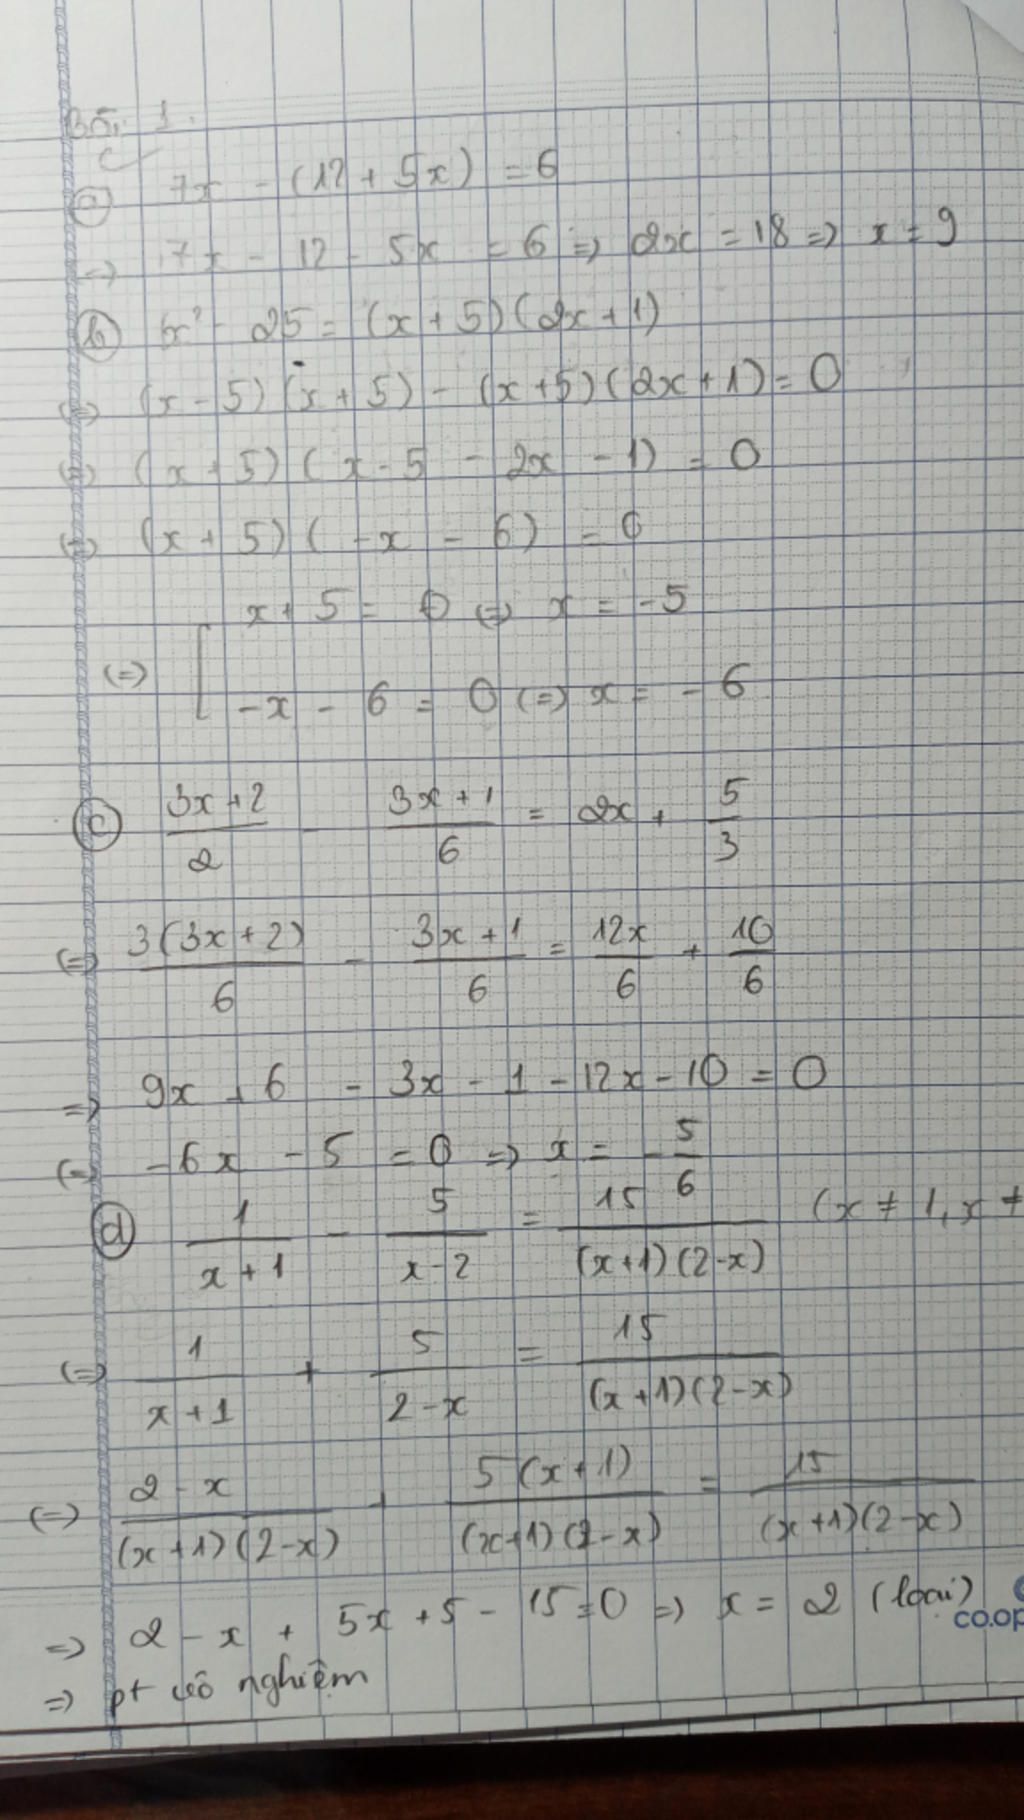 Bài 1.
a) 7x - (12 + 5x) = 6
=> 7x - 12 - 5x = 6 => 2x = 18 => x = 9
b) x² - 25 = (x + 5)(2x + 1)
<=> (x - 5)(x + 5) - (x + 5)(2x + 1) = 0
<=> (x + 5)(x - 5 - 2x - 1) = 0
<=> (x + 5)(-x - 6) = 0
<=> [ x + 5 = 0 <=> x = -5
-x - 6 = 0 <=> x = -6
c) (3x+2)/2 - (3x+1)/6 = 2x + 5/3
<=> 3(3x+2)/6 - (3x+1)/6 = 12x/6 + 10/6
=> 9x + 6 - 3x - 1 - 12x - 10 = 0
<=> -6x - 5 = 0 => x = -5/6
d) 1/(x+1) - 5/(x-2) = 15/((x+1)(2-x)) (x ≠ 1, x ≠
<=> 1/(x+1) + 5/(2-x) = 15/((x+1)(2-x))
<=> (2-x)/((x+1)(2-x)) + 5(x+1)/((x+1)(2-x)) = 15/((x+1)(2-x))
=> 2 - x + 5x + 5 - 15 = 0 => x = 2 (loại)
co.op
=> pt vô nghiệm